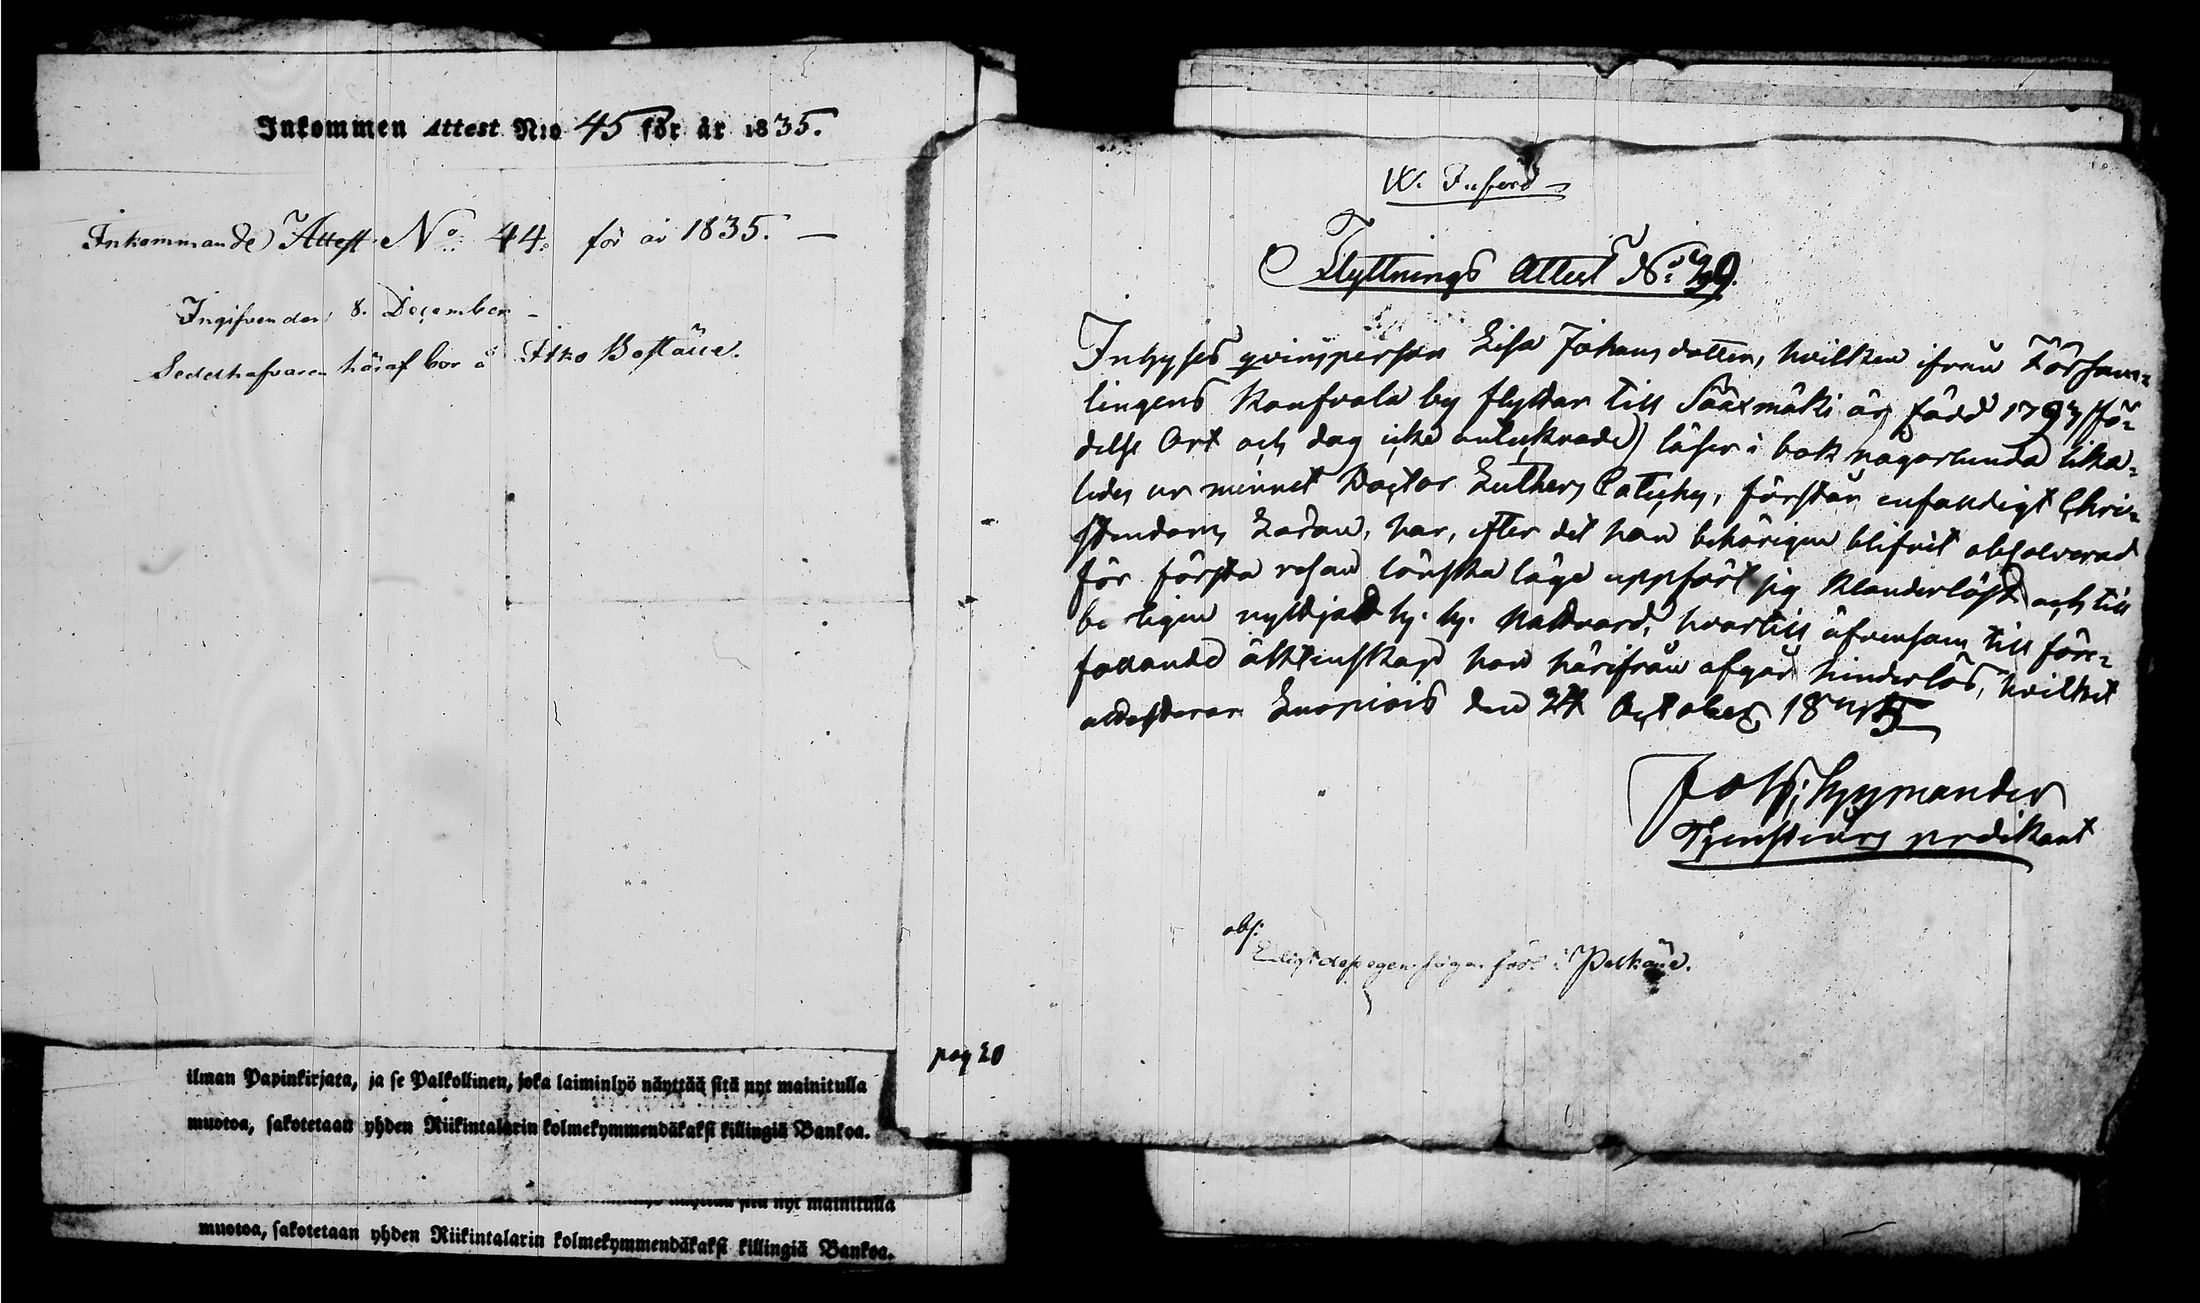 Inkommen Attest N:o 45 för år 1835.
Inkommande Attest No. 44. för år 1835. —
Ingifven den 8. December —
Sedelhafvaren häraf bor å Itko Boställe.
ilman Papinkirjata, ja se Palkollinen, joka laiminlyö näyttää sitä nyt mainitulla
muotoa, sakotetaan yhden Riikintalarin kolmekymmendäkaksi killingiä Bankoa.
nyt mainitulla
muotoa, sakotetaan yhden Riikintalarin kolmekymmendäkaksi killingiä Bankoa.
W. Införd
Flyttnings Attest No.
Inhyses qvinsperson Lisa Johansdotter, hvilken ifrån Försam-
lingens by flyttar till Sääxmäki är född 1797 (fö-
delse Ort och dag icke antecknade) läser i bok någorlunda lika-
ledes ur minnet Doctor Luthers Catechs, förstår enfaldigt Chri-
stendoms Läran, har, efter det hon behörigen blifvit absolverad
för första resan lönska läge uppfört sig klanderlöst och till
nyttjat h. h. Nattvard, hvartill äfvensom till före-
fallande äktenskap hon härifrån afgår hinderlös, hvilket
attesterar Kuopiois den 24 October 1835
Hymander
Tjenstgörs predikant
obs:
Enligt dess egen sägen född i Pelkäne.
pag 20